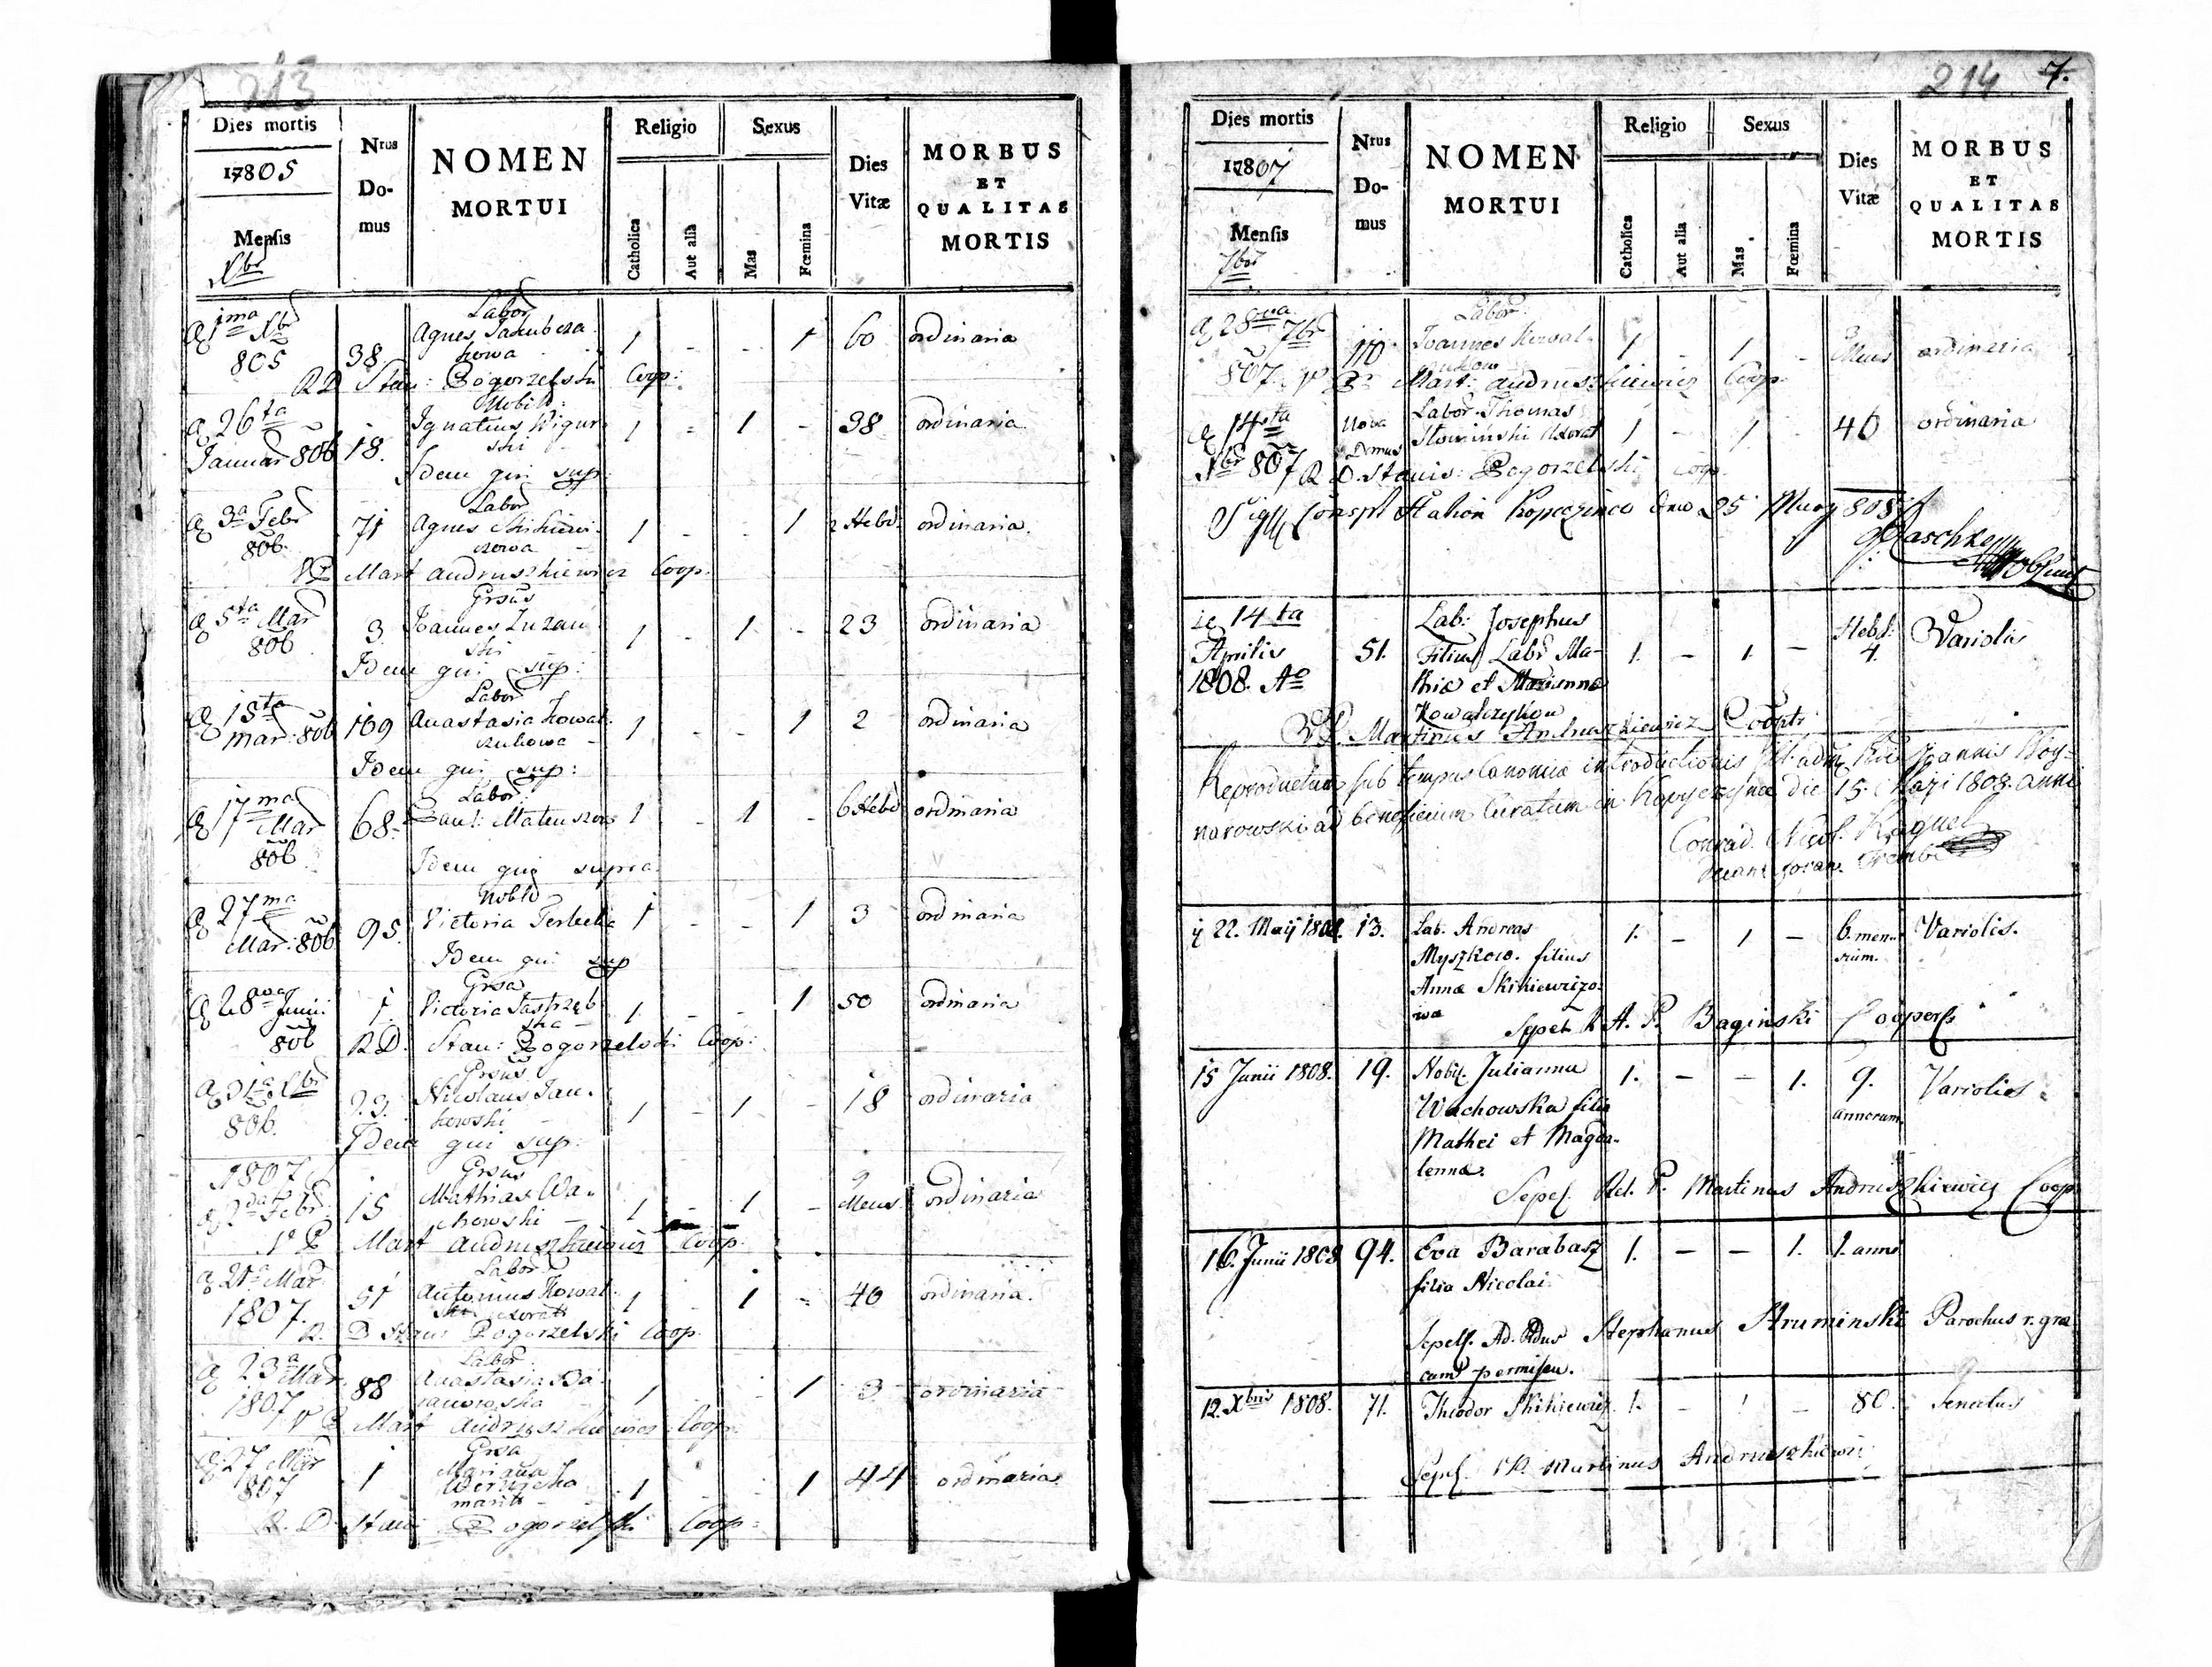 213
Dies mortis
17805
Mensis
Xbr
Nrus
Do-
mus
NOMEN
MORTUI
Religio
Catholica
Aut alia
Sexus
Mas
Fœmina
Dies
Vitæ
MORBUS
ET
QUALITAS
MORTIS
Labor
1ma Xbr
805 38 Agnes Jakubcza
kowa 1 - - 1 60 ordinaria
RD Stan: Pogorzelski Coop:
Nobilis
26ta
Januar 806 18. Ignatius Wigur
ski 1 - 1 - 38 ordinaria
Idem qui sup:
Labor
3a Febr
806. 71 Agnes Skikiewi
czowa 1 - - 1 2 Hebd. ordinaria.
VP Mart Andruszkiewicz Coop.
Grsus
5ta Mar
806 3 Joannes Luzan
ski 1 - 1 - 23 ordinaria
Idem qui sup:
Labor
15ta
Mar: 806 109 Anastasia Kowal
czukowa 1 - - 1 2 ordinaria
Idem qui sup:
Labor:
17ma
Mar
806 68. Paul: Mateuszow 1 - 1 - 6 Hebd ordinaria
Idem qui supra
Nobls
27ma
Mar: 806 95. Victoria Terlecka 1 - - 1 3 ordinaria
Idem qui sup
Grsa
28va Junii
806 1. Victoria Jastrzęb
ska 1 - - 1 50 ordinaria
R.D. Stan: Pogorzelski Coop:
Grsus
31a Xbr
806. 23. Nicolaus Jan-
kowski 1 - 1 - 18 ordinaria
Idem qui sup:
1807
Grsus
2da Febr. 15 Mathias Wa-
chowski 1 - 1 - 9 Mens. ordinaria
VP Mart Andruszkiewicz Coop.
Labor
21a Mar
1807. 51 Antonius Kowal-
uxorat 1 - 1 - 40 ordinaria.
R. D Stan Pogorzelski Coop.
Labor
23a Mar
1807 88 Anastasia Ba-
ranowska 1 - - 1 3 ordinaria
VP Mart Andruszkiewicz Coop.
Grsa
27 Mar
807 1 Mariana
marit 1 - - 1 44 ordinaria.
R. D. Stan: Pogorzelski Coop:
214 7.
Dies mortis
17807
Mensis
7br
Nrus
Do-
mus
NOMEN
MORTUI
Religio
Catholica
Aut alia
Sexus
Mas
Fœmina
Dies
Vitæ
MORBUS
ET
QUALITAS
MORTIS
Labor
28va 7br
807. 110 Joannes Kowal-
1 - 1 - 3 Mens ordinaria
VP Mart: Andruszkiewicz Coop.
14ta
Xbr 807 Nova
Domus Labor Thomas
Słowiński Uxorat 1 - 1 - 40 ordinaria
R D. Stanis: Pogorzelski Coop.
Sigll Conspt Station Kopeczince 25 808
Raschke
14ta
Aprilis
1808. Ao 51. Lab: Josephus
Filius Labr Ma-
thiæ et Marianna
Kowalczykow 1. - 1. - Hebd:
4. Variolis
VP. Martinus Andruszkiewicz Cooptr
Reproductum sub tempus Canonicæ introductionis Joannis Woy-
narowski ad beneficium Curatum in Kopyczynce die 15. Maji 1808. anni
Conrad. Nicol.
22. Maij 1808. 13. Lab. Andreas
Myszkow. filius
Annæ Skikiewiczo-
wa 1. - 1 - 6. men-
sium. Variolis.
Sepel. R A. P. Baginski Cooper
15 Junii 1808. 19. Nobil. Julianna
Wachowska filia
Mathei et Magda-
lenna. 1. - - 1. 9.
annorum. Variolis
Sepel. Rel. P. Martinus Andruszkiewicz Coop.
16. Junii 1808 94. Eva Barabasz
filia Nicolai. 1. - - 1. 1. anni
Sepel. Ad. Rdus Stephanus Struminski Parochus r. græ.
cum permissu.
12. Xbris 1808. 71. Theodor Skikiewicz. 1. - 1 - 80. Senectus
Sepel. VP. Martinus Andruszkiewicz